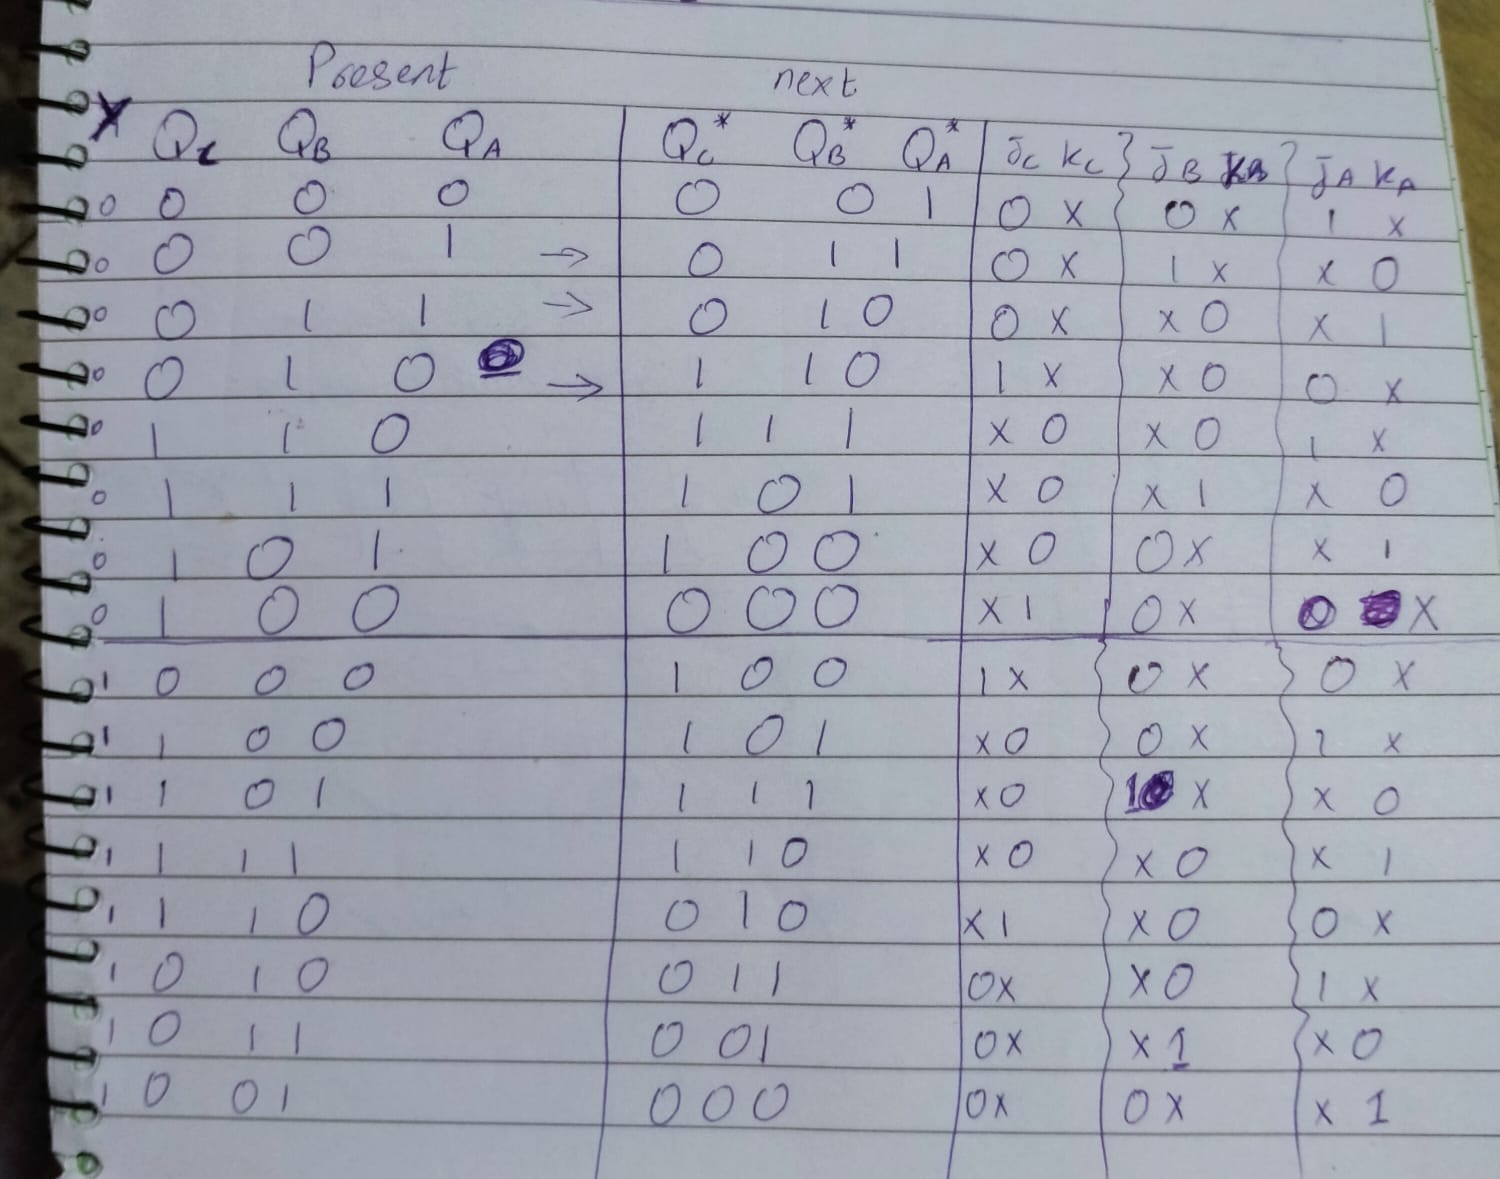 Present next
X Qc QB QA Qc* QB* QA* Jc Kc JB KB JA KA
0 0 0 0 0 0 1 0 x 0 x 1 x
0 0 0 1 → 0 1 1 0 x 1 x x 0
0 0 1 1 → 0 1 0 0 x x 0 x 1
0 0 1 0 → 1 1 0 1 x x 0 0 x
0 1 1 0 1 1 1 x 0 x 0 1 x
0 1 1 1 1 0 1 x 0 x 1 x 0
0 1 0 1 1 0 0 x 0 0 x x 1
0 1 0 0 0 0 0 x 1 0 x 0 x
1 0 0 0 1 0 0 1 x 0 x 0 x
1 1 0 0 1 0 1 x 0 0 x 1 x
1 1 0 1 1 1 1 x 0 1 x x 0
1 1 1 1 1 1 0 x 0 x 0 x 1
1 1 1 0 0 1 0 x 1 x 0 0 x
1 0 1 0 0 1 1 0 x x 0 1 x
1 0 1 1 0 0 1 0 x x 1 x 0
1 0 0 1 0 0 0 0 x 0 x x 1